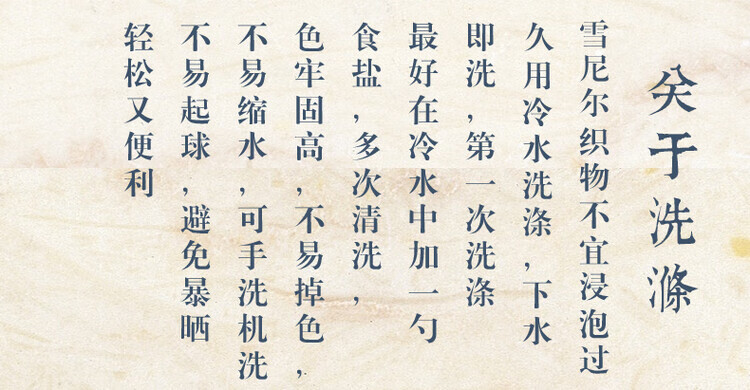 关于洗滌
雪尼尔织物不宜浸泡过
久用冷水洗涤,下水
即洗,第一次洗涤
最好在冷水中加一勺
食盐,多次清洗,
色牢固高,不易掉色,
不易缩水,可手洗机洗
不易起球,避免暴晒
轻松又便利